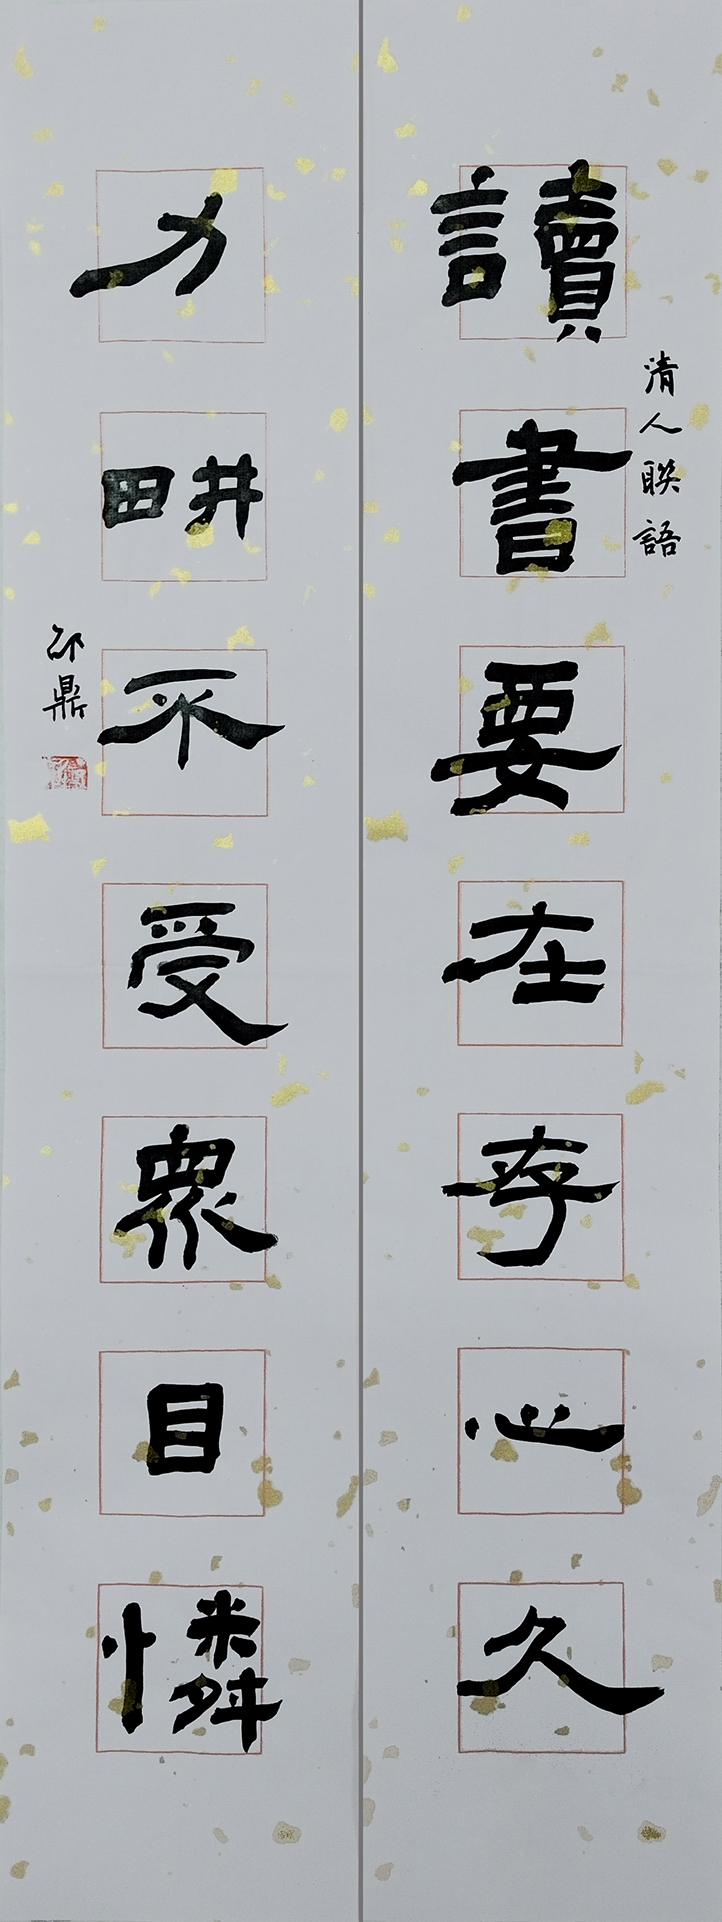 讀書要在存心久
清人聯語
力畊不受眾目憐
邵鼎